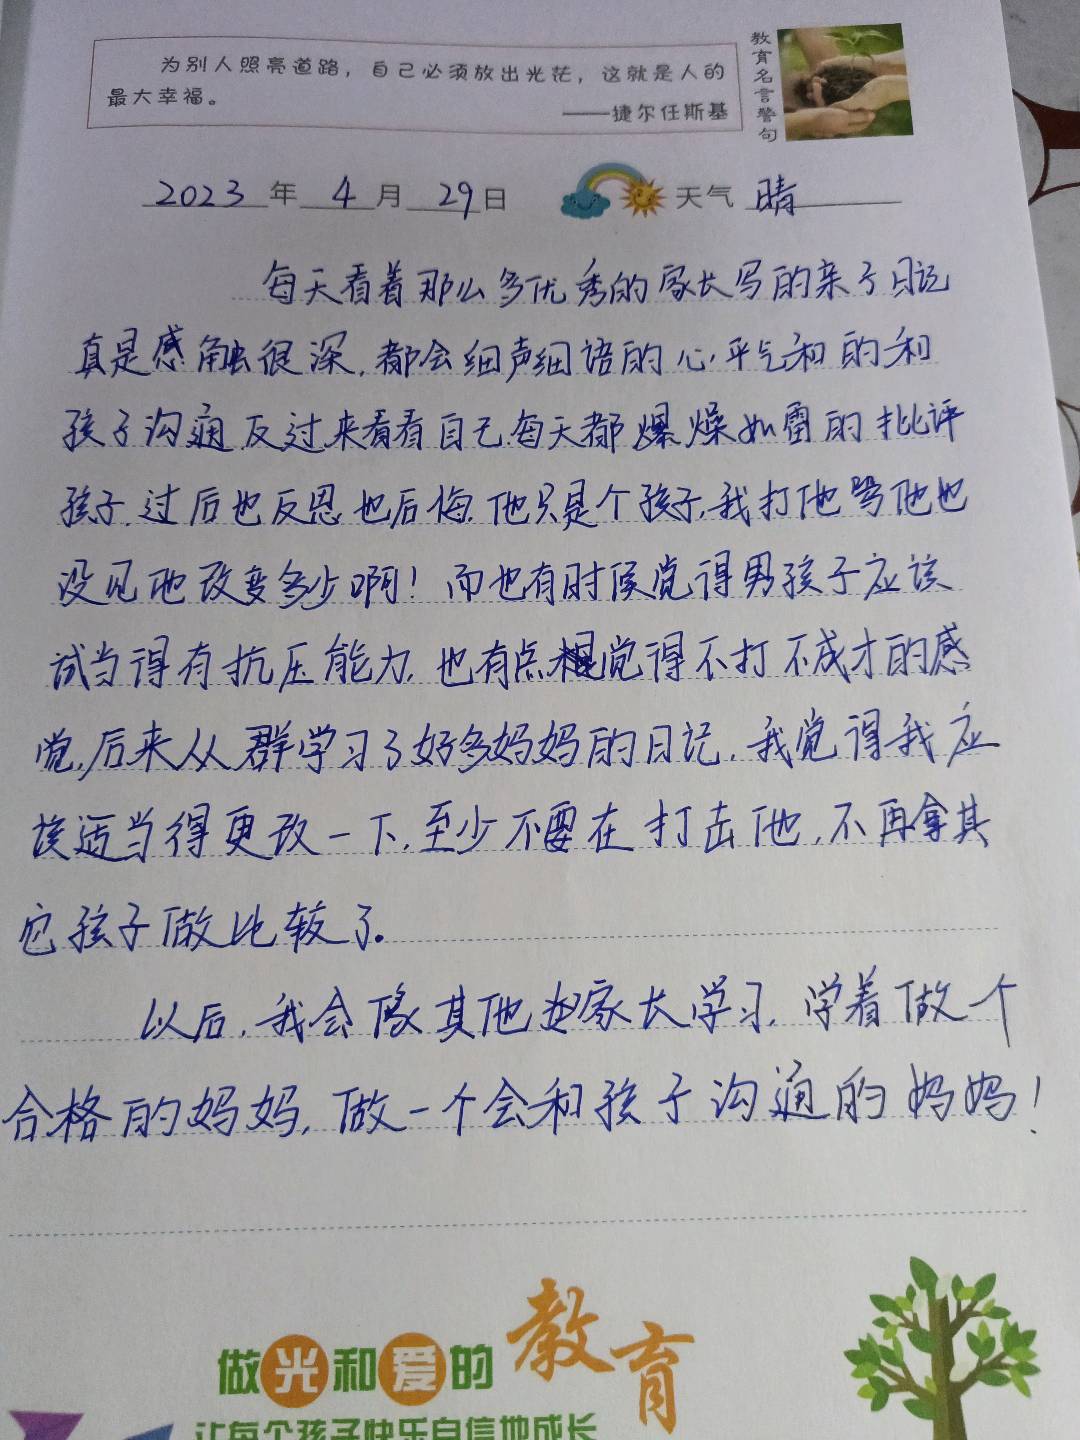 为别人照亮道路，自己必须放出光茫，这就是人的
最大幸福。
——捷尔任斯基
教育名言警句
2023年4月29日 天气 晴
每天看着那么多优秀的家长写的亲子日记
真是感触很深,都会细声细语的心平气和的和
孩子沟通,反过来看看自己每天都爆燥如雷的批评
孩子,过后也反思也后悔,他只是个孩子,我打他骂他也
没见他改变多少啊！而也有时候觉得男孩子应该
试当得有抗压能力,也有点觉得不打不成才的感
觉,后来从群学习了好多妈妈的日记,我觉得我应
该适当得更改一下,至少不要在打击他,不再拿其
它孩子做比较了.
以后,我会像其他家长学习,学着做一个
合格的妈妈,做一个会和孩子沟通的妈妈！
做光和爱的教育
让每个孩子快乐自信地成长